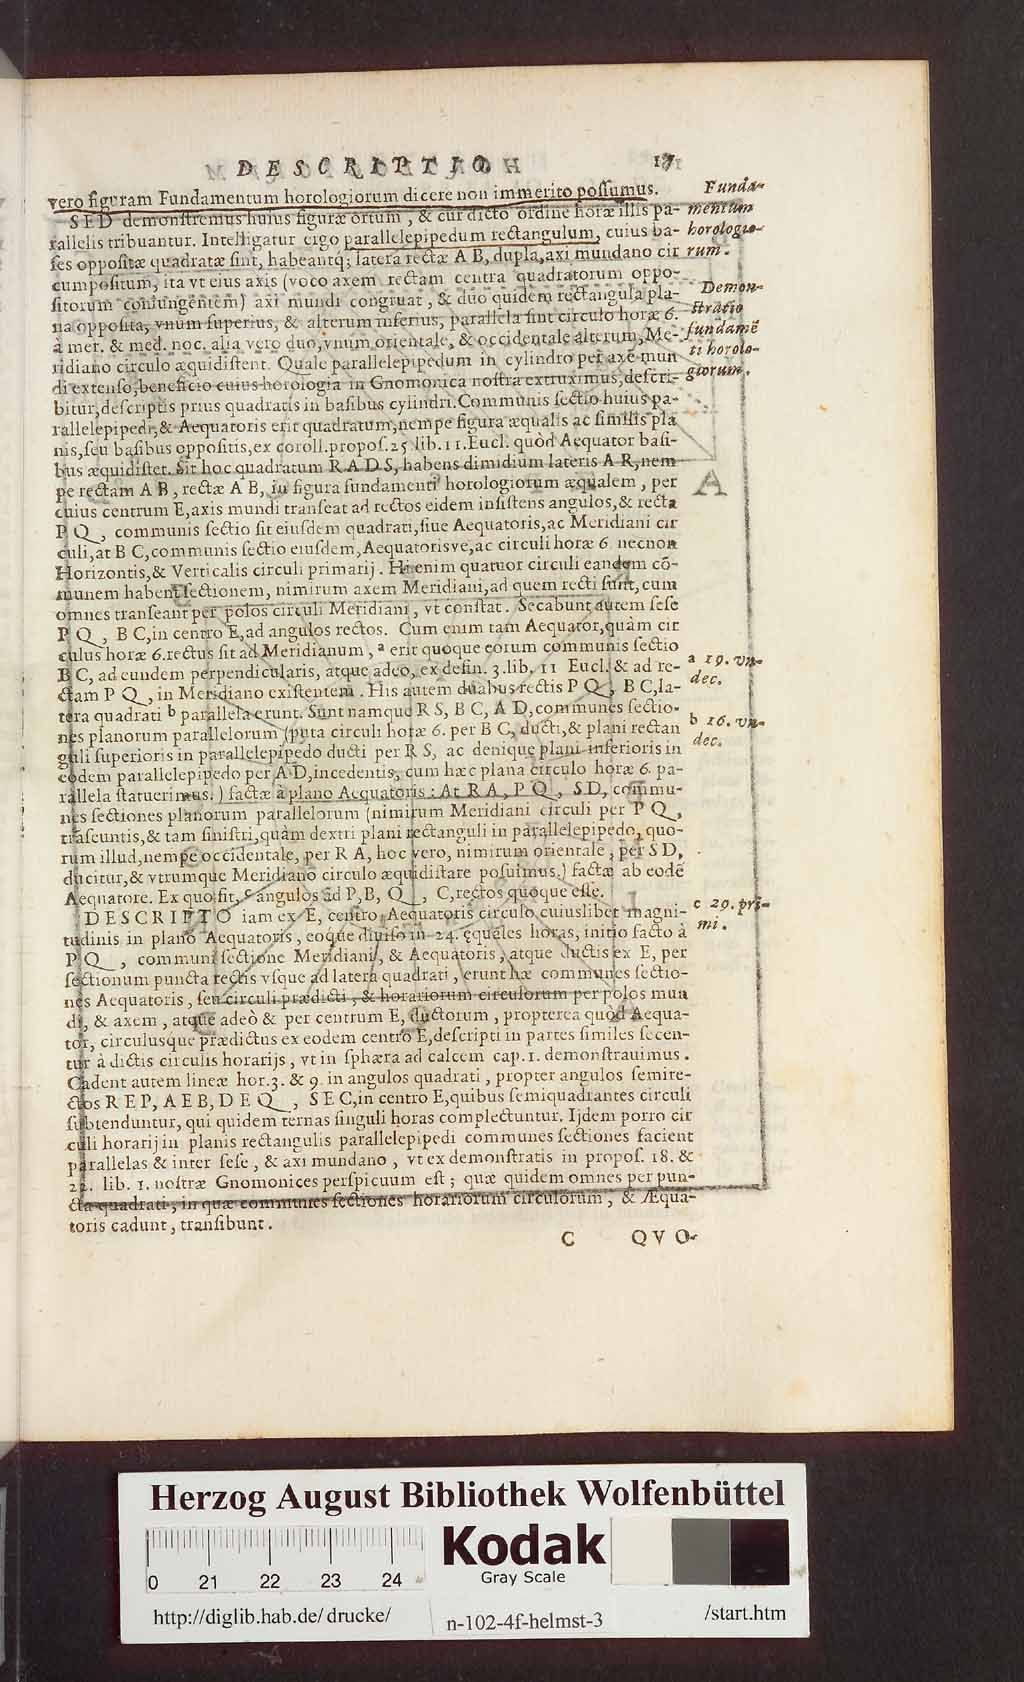 DESCRIPTIO 17
vero figuram Fundamentum horologiorum dicere non immerito possumus.
SED demonstremus huius figuræ ortum, & cur dicto ordine horæ illis pa-
rallelis tribuantur. Intelligatur ergo parallelepipedum rectangulum, cuius ba-
ses oppositæ quadratæ sint, habeantq́; latera rectæ A B, dupla, axi mundano cir
cumpositum, ita vt eius axis (voco axem rectam centra quadratorum oppo-
sitorum coniungentem) axi mundi congruat, & duo quidem rectangula pla-
na opposita, vnum superius, & alterum inferius, parallela sint circulo horæ 6.
à mer. & med. noc. alia vero duo, vnum orientale, & occidentale alterum, Me-
ridiano circulo æquidistent. Quale parallelepipedum in cylindro per axẽ mun
di extenso, beneficio cuius horologia in Gnomonica nostra extruximus, descri-
bitur, descriptis prius quadratis in basibus cylindri. Communis sectio huius pa-
rallelepipedi, & Aequatoris erit quadratum, nempe figura æqualis ac similis pla
nis, seu basibus oppositis, ex coroll. propos. 25 lib. 11. Eucl. quòd Aequator basi-
bus æquidistet. Sit hoc quadratum R A D S, habens dimidium lateris A R, nem
pe rectam A B, rectæ A B, in figura fundamenti horologiorum æqualem, per
cuius centrum E, axis mundi transeat ad rectos eidem insistens angulos, & recta
P Q, communis sectio sit eiusdem quadrati, siue Aequatoris, ac Meridiani cir
culi, at B C, communis sectio eiusdem, Aequatorisve, ac circuli horæ 6 necnon
Horizontis, & Verticalis circuli primarij. Hi enim quatuor circuli eandem cõ-
munem habent sectionem, nimirum axem Meridiani, ad quem recti sunt, cum
omnes transeant per polos circuli Meridiani, vt constat. Secabunt autem sese
P Q, B C, in centro E, ad angulos rectos. Cum enim tam Aequator, quàm cir
culus horæ 6. rectus sit ad Meridianum, a erit quoque eorum communis sectio
B C, ad eundem perpendicularis, atque adeo, ex defin. 3. lib. 11 Eucl. & ad re-
ctam P Q, in Meridiano existentem. His autem duabus rectis P Q, B C, la-
tera quadrati b parallela erunt. Sunt namque R S, B C, A D, communes sectio-
nes planorum parallelorum (puta circuli horæ 6. per B C, ducti, & plani rectan
guli superioris in parallelepipedo ducti per R S, ac denique plani inferioris in
eodem parallelepipedo per A D, incedentis, cum hæc plana circulo horæ 6. pa-
rallela statuerimus.) factæ à plano Aequatoris: At R A, P Q, S D, commu-
nes sectiones planorum parallelorum (nimirum Meridiani circuli per P Q,
trãseuntis, & tam sinistri, quàm dextri plani rectanguli in parallelepipedo, quo-
rum illud, nempe occidentale, per R A, hoc vero, nimirum orientale, per S D,
ducitur, & vtrumque Meridiano circulo æquidistare posuimus.) factæ ab eodẽ
Aequatore. Ex quo fit, c angulos ad P, B, Q, C, rectos quoque esse.
DESCRIPTO iam ex E, centro Aequatoris circulo cuiuslibet magni-
tudinis in plano Aequatoris, eoque diuiso in 24. equales horas, initio facto à
P Q, communi sectione Meridiani, & Aequatoris, atque ductis ex E, per
sectionum puncta rectis vsque ad latera quadrati, erunt hæ communes sectio-
nes Aequatoris, seu circuli prædicti, & horariorum circulorum per polos mun
di, & axem, atque adeò & per centrum E, ductorum, propterea quòd Aequa-
tor, circulusque prædictus ex eodem centro E, descripti in partes similes secen-
tur à dictis circulis horarijs, vt in sphæra ad calcem cap. 1. demonstrauimus.
Cadent autem lineæ hor. 3. & 9. in angulos quadrati, propter angulos semire-
ctos R E P, A E B, D E Q, S E C, in centro E, quibus semiquadrantes circuli
subtenduntur, qui quidem ternas singuli horas complectuntur. Ijdem porro cir
culi horarij in planis rectangulis parallelepipedi communes sectiones facient
parallelas & inter sese, & axi mundano, vt ex demonstratis in propos. 18. &
22. lib. 1. nostræ Gnomonices perspicuum est; quæ quidem omnes per pun-
cta quadrati, in quæ communes sectiones horariorum circulorum, & Æqua-
toris cadunt, transibunt.
C QVO-
Funda-
mentum
horologio-
rum.
Demon-
stratio
fundamẽ
ti horolo-
giorum.
a 19. vn-
dec.
b 16. vn-
dec.
c 29. pri-
mi.
Herzog August Bibliothek Wolfenbüttel
0 21 22 23 24
Kodak
Gray Scale
http://diglib.hab.de/drucke/ n-102-4f-helmst-3 /start.htm